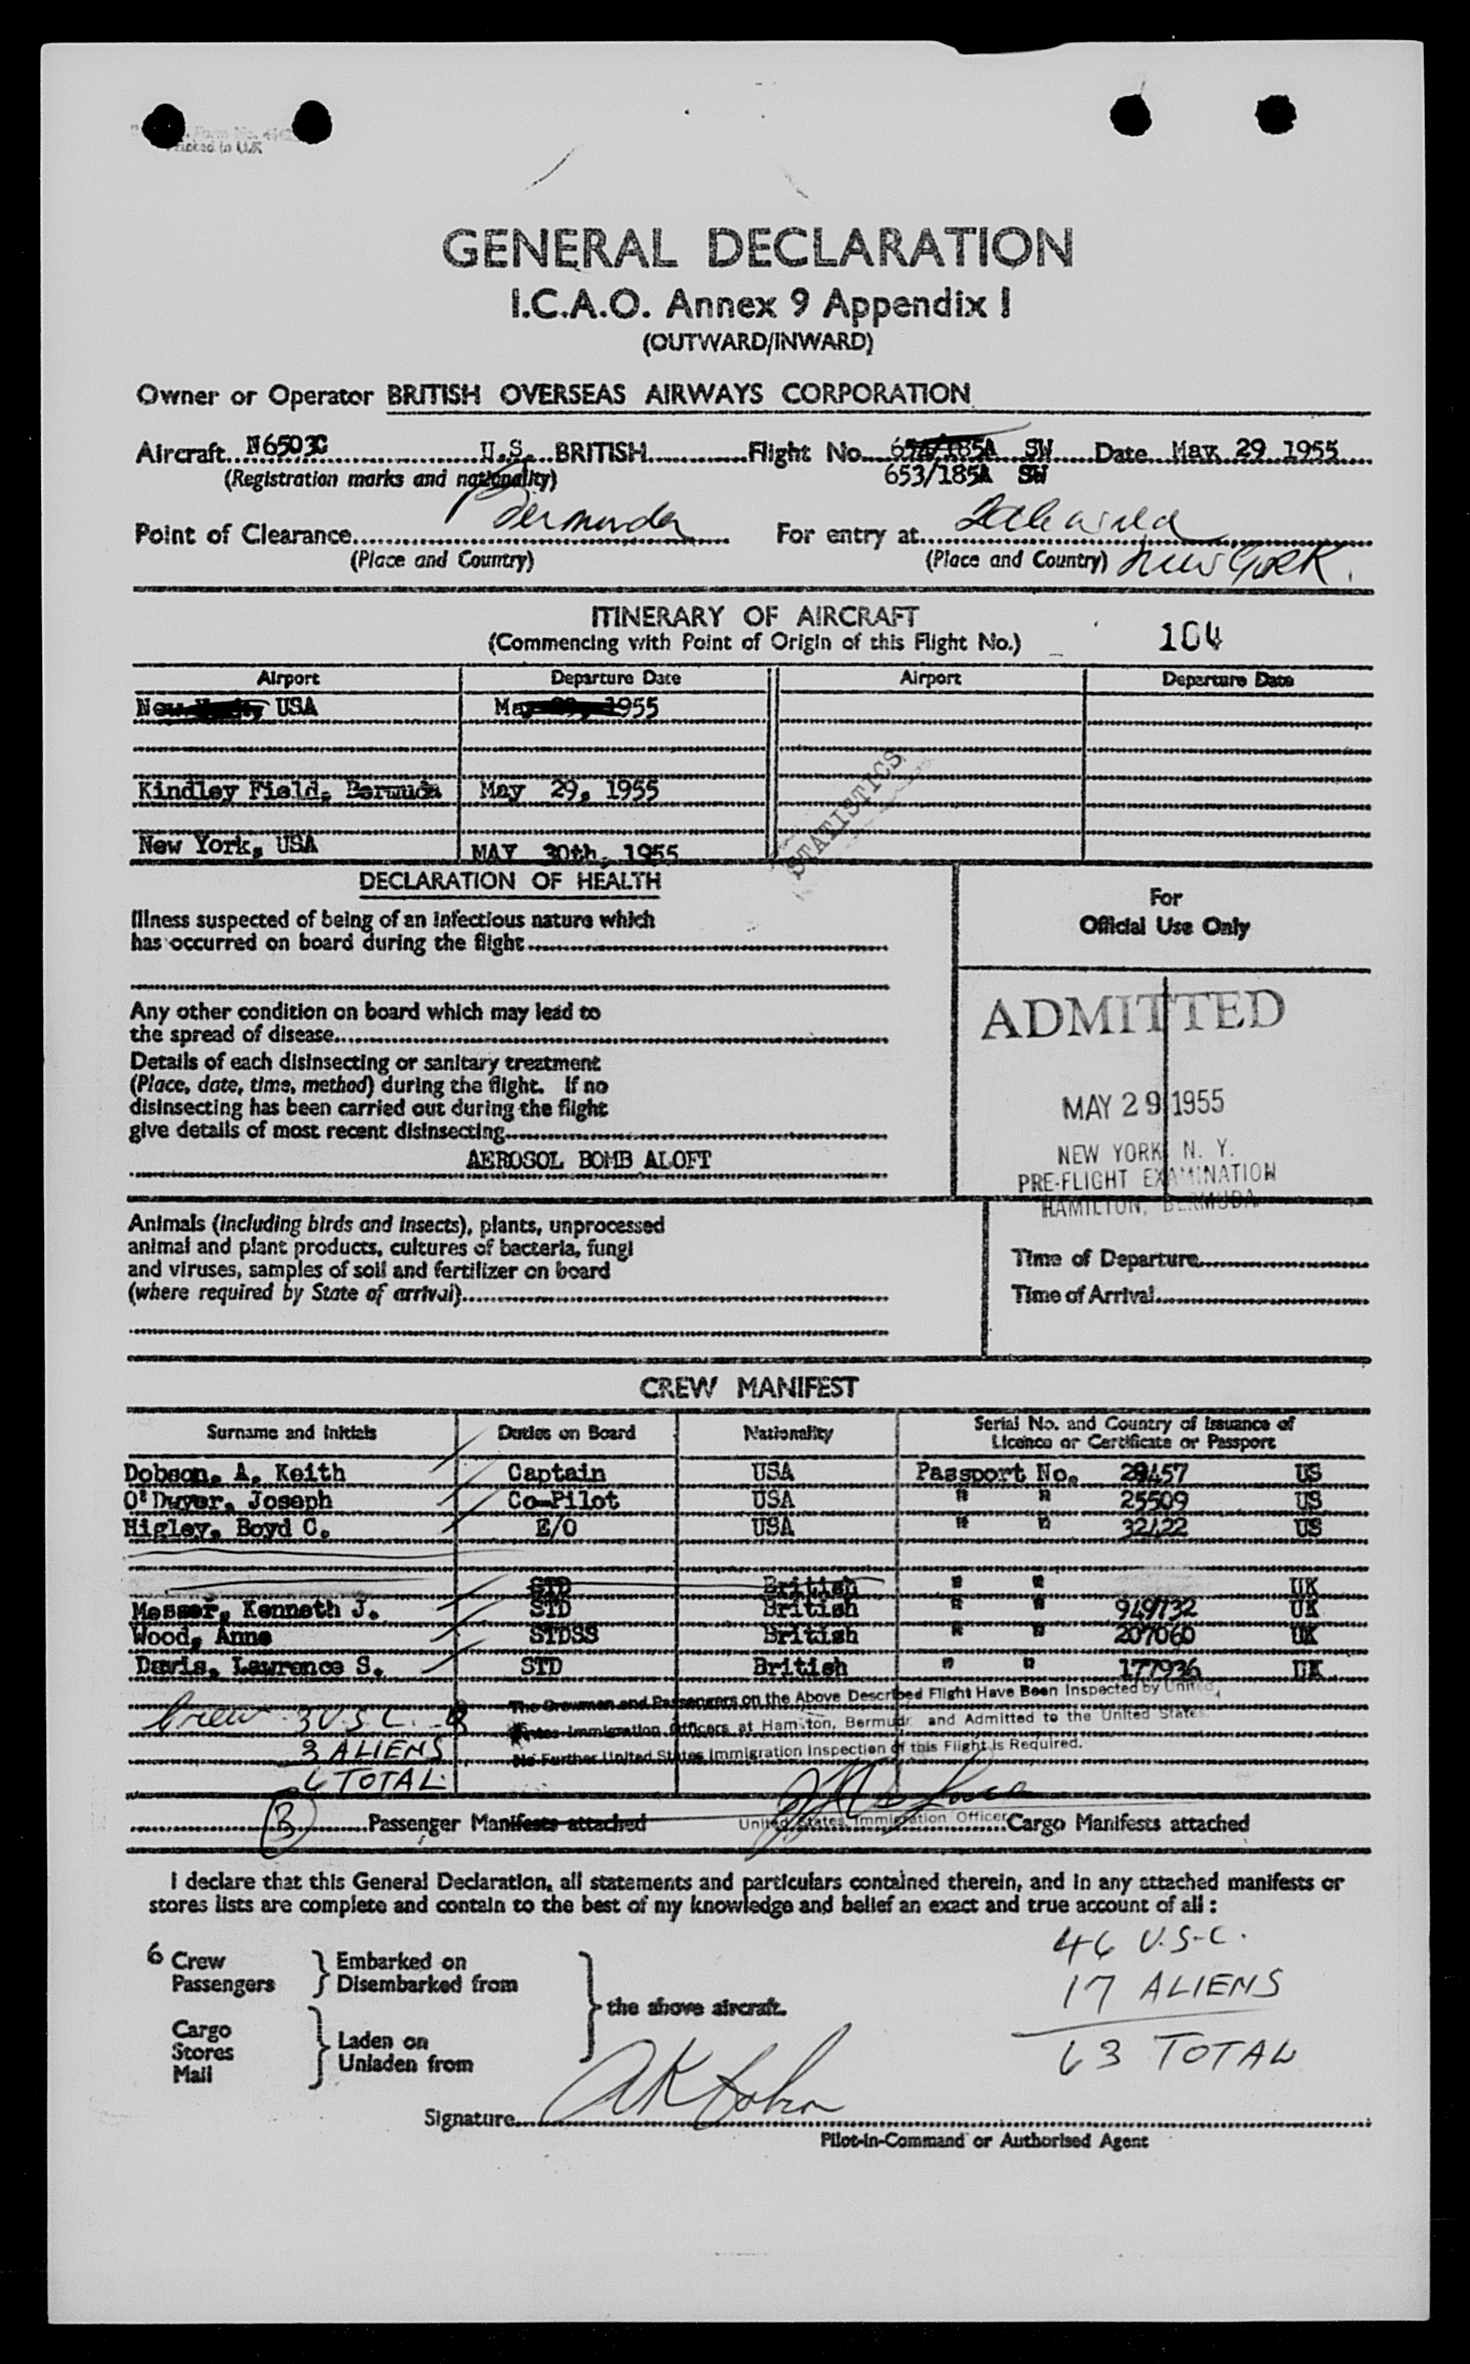 Printed in U.K.
GENERAL DECLARATION
I.C.A.O. Annex 9 Appendix I
(OUTWARD/INWARD)
Owner or Operator BRITISH OVERSEAS AIRWAYS CORPORATION
Aircraft N6503C U.S. BRITISH Flight No. 654/185A SW Date May 29 1955
(Registration marks and nationality) 653/185A SW
Point of Clearance Bermuda For entry at Idlewild
(Place and Country) (Place and Country) New York.
ITINERARY OF AIRCRAFT
(Commencing with Point of Origin of this Flight No.) 104
Airport Departure Date Airport Departure Date
New USA May 1955
Kindley Field, Bermuda May 29, 1955
STATISTICS
New York, USA MAY 30th, 1955
DECLARATION OF HEALTH
For
Official Use Only
Illness suspected of being of an infectious nature which
has occurred on board during the flight
Any other condition on board which may lead to
the spread of disease
Details of each disinsecting or sanitary treatment
(Place, date, time, method) during the flight. If no
disinsecting has been carried out during the flight
give details of most recent disinsecting
AEROSOL BOMB ALOFT
ADMITTED
MAY 29 1955
NEW YORK, N. Y.
PRE-FLIGHT EXAMINATION
HAMILTON, BERMUDA
Animals (including birds and insects), plants, unprocessed
animal and plant products, cultures of bacteria, fungi
and viruses, samples of soil and fertilizer on board
(where required by State of arrival)
Time of Departure
Time of Arrival
CREW MANIFEST
Surname and Initials Duties on Board Nationality Serial No. and Country of Issuance of
Licence or Certificate or Passport
Dobson, A. Keith Captain USA Passport No. 29457 US
O'Dwyer, Joseph Co-Pilot USA " " 25509 US
Higley, Boyd C. E/O USA " " 32422 US
STD British " " UK
Messer, Kenneth J. STD British " " 949732 UK
Wood, Anne STDSS British " " 207060 UK
Davis, Lawrence S. STD British " " 177936 UK
The Crewmen and Passengers on the Above Described Flight Have Been Inspected by United
States Immigration Officers at Hamilton, Bermuda and Admitted to the United States.
No Further United States Immigration Inspection of this Flight Is Required.
Crew 3 U.S.C.
3 ALIENS
6 TOTAL
3 Passenger Manifests attached United States Immigration Officer Cargo Manifests attached
I declare that this General Declaration, all statements and particulars contained therein, and in any attached manifests or
stores lists are complete and contain to the best of my knowledge and belief an exact and true account of all :
6 Crew Embarked on
Passengers Disembarked from
the above aircraft.
Cargo Laden on
Stores Unladen from
Mail
46 U.S.C.
17 ALIENS
63 TOTAL
Signature AK Dobson
Pilot-in-Command or Authorised Agent